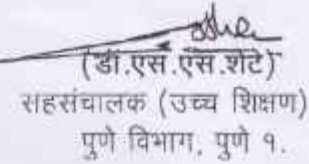 (डी.एस.एस.शेटे)
सहसंचालक (उच्च शिक्षण)
पुणे विभाग, पुणे १.